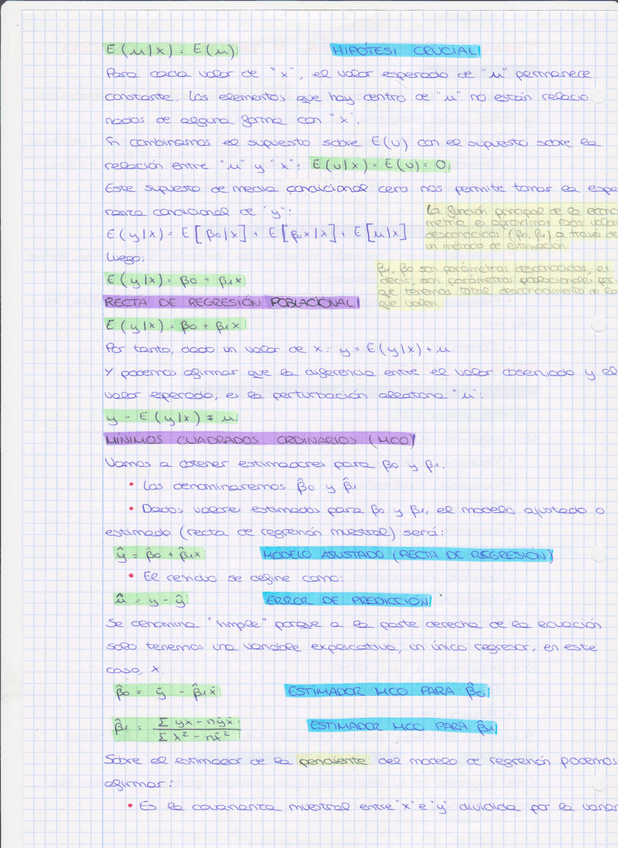 E(u|x) = E(u)	HIPÓTESI CRUCIAL
Para cada valor de "x", el valor esperado de "u" permanece
constante. Los elementos que hay dentro de "u" no están relacio
nados de alguna forma con "x".
Si combinamos el supuesto sobre E(u) con el supuesto sobre la
relación entre "u" y "x": E(u|x) = E(u) = 0
Este supuesto de media condicional cero nos permite tomar la espe
ranza condicional de "y":
E(y|x) = E[β0|x] + E[β1x|x] + E[u|x]
La función principal de la econo
metría es aproximar esos valores
desconocidos (β0, β1) a través de
un método de estimación
Luego:
E(y|x) = β0 + β1x
β1, β0 son parámetros desconocidos, es
decir, son parámetros poblacionales por
que tenemos total desconocimiento de lo
que valen.
RECTA DE REGRESION POBLACIONAL
E(y|x) = β0 + β1x
Por tanto, dado un valor de x: y = E(y|x) + u
Y podemos afirmar que la diferencia entre el valor observado y el
valor esperado, es la perturbación aleatoria "u":
y - E(y|x) = u
MÍNIMOS CUADRADOS ORDINARIOS (MCO)
Vamos a obtener estimadores para β0 y β1.
• Los denominaremos β̂0 y β̂1
• Dados valores estimados para β0 y β1, el modelo ajustado o
estimado (recta de regresión muestral) será:
ŷ = β̂0 + β̂1x	MODELO AJUSTADO (RECTA DE REGRESIÓN)
• El residuo se define como:
û = y - ŷ	ERROR DE PREDICCIÓN
Se denomina "simple" porque a la parte derecha de la ecuación
solo tenemos una variable explicativa, un único regresor, en este
caso, x
β̂0 = ȳ - β̂1x̄	ESTIMADOR MCO PARA β̂0
β̂1 = Σyx - nȳx̄ / Σx² - nx̄²	ESTIMADOR MCO PARA β̂1
Sobre el estimador de la pendiente del modelo de regresión podemos
afirmar:
• Es la covarianza muestral entre "x" e "y" dividida por la varian